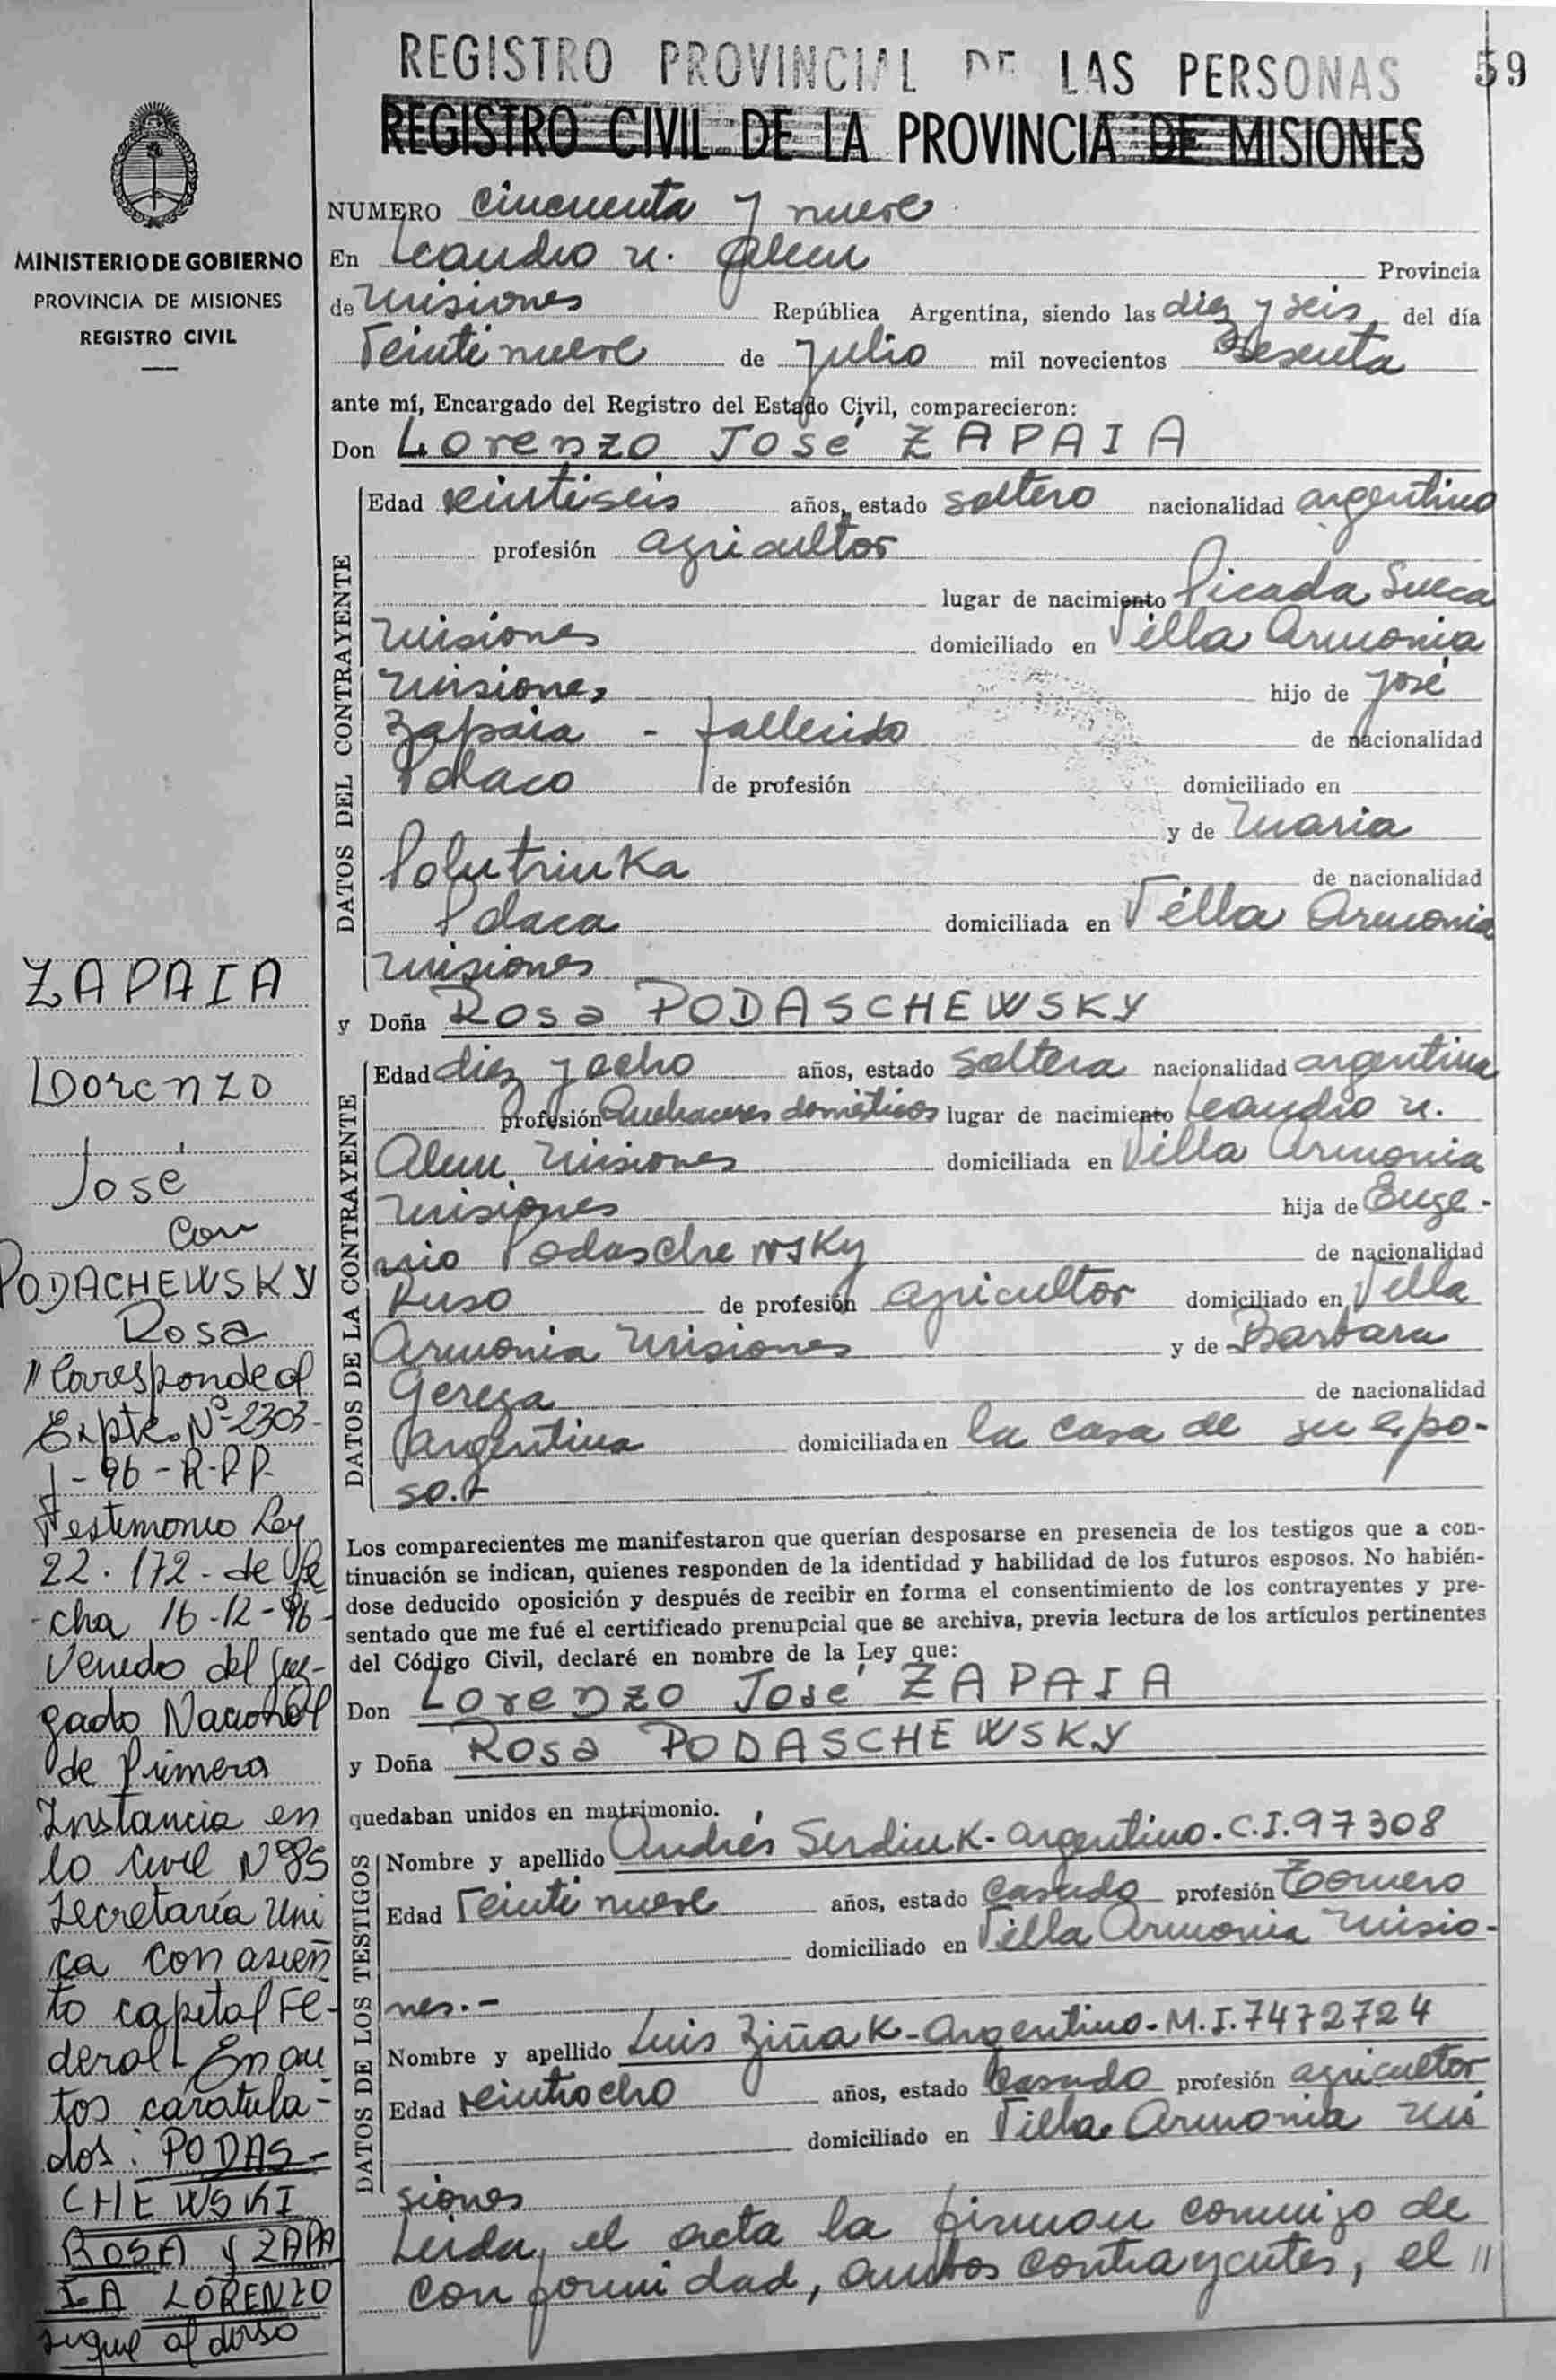 REGISTRO PROVINCIAL DE LAS PERSONAS 59
REGISTRO CIVIL DE LA PROVINCIA DE MISIONES
MINISTERIO DE GOBIERNO
PROVINCIA DE MISIONES
REGISTRO CIVIL
ZAPAIA
Lorenzo
José
Con
PODACHEWSKY
Rosa
"Corresponde al
Expte. Nº 2303-
J-96-R.P.P.
Testimonio Ley
22.172- de fe
-cha 16-12-96-
Venido del Juz-
gado Nacional
de Primera
Instancia en
lo Civil Nº 85
Secretaría Uni
ca con asien
to capital Fe-
deral. En au
tos caratula-
dos: PODAS-
CHEWSKI
ROSA y ZAPA
IA LORENZO
sigue al dorso
NUMERO cincuenta y nueve
En Leandro N. Alem Provincia
de Misiones República Argentina, siendo las diez y seis del día
Veintinueve de Julio mil novecientos sesenta
ante mí, Encargado del Registro del Estado Civil, comparecieron:
Don Lorenzo José ZAPAIA
DATOS DEL CONTRAYENTE
Edad veintiseis años, estado soltero nacionalidad argentino
profesión agricultor
lugar de nacimiento Picada Sueca
Misiones domiciliado en Villa Armonia
Misiones hijo de José
Zapaia - fallecido de nacionalidad
Polaco de profesión domiciliado en
y de Maria
Polutrinka de nacionalidad
Polaca domiciliada en Villa Armonia
Misiones
y Doña Rosa PODASCHEWSKY
DATOS DE LA CONTRAYENTE
Edad diez y ocho años, estado soltera nacionalidad argentina
profesión Quehaceres domésticos lugar de nacimiento Leandro N.
Alem Misiones domiciliada en Villa Armonia
Misiones hija de Euge-
nio Podaschewsky de nacionalidad
Ruso de profesión agricultor domiciliado en Villa
Armonia Misiones y de Barbara
Gereza de nacionalidad
Argentina domiciliada en la casa de su espo-
so.-
Los comparecientes me manifestaron que querían desposarse en presencia de los testigos que a con-
tinuación se indican, quienes responden de la identidad y habilidad de los futuros esposos. No habién-
dose deducido oposición y después de recibir en forma el consentimiento de los contrayentes y pre-
sentado que me fué el certificado prenupcial que se archiva, previa lectura de los artículos pertinentes
del Código Civil, declaré en nombre de la Ley que:
Don Lorenzo José ZAPAIA
y Doña Rosa PODASCHEWSKY
quedaban unidos en matrimonio.
DATOS DE LOS TESTIGOS
Nombre y apellido Andrés Serdiuk- argentino. C.I. 97308
Edad Veintinueve años, estado casado profesión Tornero
domiciliado en Villa Armonia Misio-
nes.-
Nombre y apellido Luis Ziñak- argentino- M.I. 7472724
Edad veintiocho años, estado casado profesión agricultor
domiciliado en Villa Armonia Mi
siones
Leida, el acta la firman conmigo de
conformidad, ambos contrayentes, el "